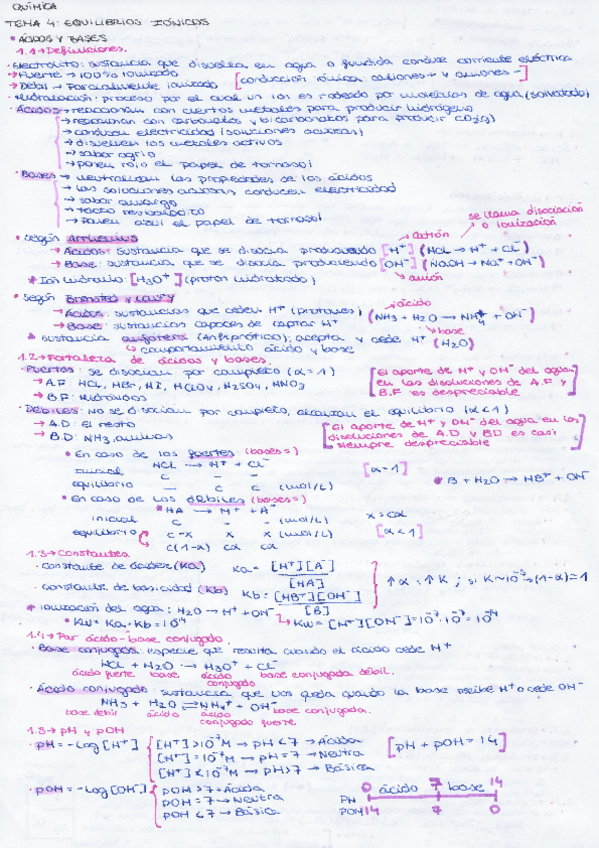 QUÍMICA
TEMA 4: EQUILIBRIOS IÓNICOS
* ÁCIDOS Y BASES
1.1→Definiciones.
· Electrolito: sustancia que disuelta en agua o fundida conduce corriente eléctrica
→Fuerte → 100% ionizado
→Debil → Parcialmente ionizado [conducción iónica cationes + y aniones -]
· Hidratación: proceso por el cual un ion es rodeado por moléculas de agua (solvatado)
· Ácidos → reaccionan con ciertos metales para producir hidrógeno
→ reaccionan con carbonatos y bicarbonatos para producir CO2(g)
→ conducen electricidad (soluciones acuosas)
→ disuelven los metales activos
→ sabor agrio
→ ponen rojo el papel de tornasol
· Bases → neutralizan las propiedades de los ácidos
→ las soluciones acuosas conducen electricidad
→ sabor amargo
→ tacto resbaladizo
→ Ponen azul el papel de tornasol
se llama disociación o ionización
* según Arrhenius
catión
→ Ácidos: sustancia que se disocia produciendo [H+] (HCl → H+ + Cl-)
→ Base: sustancia que se disocia produciendo [OH-] (NaOH → Na+ + OH-)
anión
* Ion hidronio: [H3O+] (protón hidratado)
* según Brønsted y Lowry
ácido
→ Ácidos: sustancias que ceden H+ (protones) (NH3 + H2O → NH4+ + OH-)
→ Base: sustancias capaces de captar H+
base
* sustancia anfótera (Anfiprótica), acepta y cede H+ (H2O)
↳ comportamiento ácido y base
1.2→Fortaleza de ácidos y bases.
Fuertes: se disocian por completo (α=1)
→ A.F: HCl, HBr, HI, HClO4, H2SO4, HNO3
→ B.F: Hidróxidos
[El aporte de H+ y OH- del agua en las disoluciones de A.F y B.F es despreciable]
Debiles: no se disocian por completo, alcanzan el equilibrio (α<1)
→ A.D: El resto
→ B.D: NH3, aminas
[El aporte de H+ y OH- del agua en las disoluciones de A.D y B.D es casi siempre despreciable]
* En caso de los fuertes (bases=)
HCl → H+ + Cl-
inicial C - - [α=1]
equilibrio - C C (mol/L)
* B + H2O → HB+ + OH-
* En caso de los débiles (bases=)
* HA → H+ + A-
inicial C - - (mol/L) x = cα
equilibrio C-x x x (mol/L) [α<1]
C(1-α) cα cα
1.3→Constantes
· constante de acidez (Ka) Ka = [H+][A-] / [HA]
· constante de basicidad (Kb) Kb = [HB+][OH-] / [B]
↑α : ↑K ; si K~10-5 → (1-α)≃1
* ionización del agua: H2O → H+ + OH-
* Kw = Ka · Kb = 10-14 ↳ Kw = [H+][OH-] = 10-7 · 10-7 = 10-14
1.4→Par ácido-base conjugado
· Base conjugada: especie que resulta cuando el ácido cede H+
HCl + H2O → H3O+ + Cl-
ácido fuerte base ácido conjugado base conjugada débil.
· Ácido conjugado: sustancia que nos queda cuando la base recibe H+ o cede OH-
NH3 + H2O ⇌ NH4+ + OH-
base débil ácido ácido conjugado fuerte base conjugada.
1.5→pH y pOH
· pH = -Log [H+]
[H+] > 10-7 M → pH < 7 → Ácida
[H+] = 10-7 M → pH = 7 → Neutra
[H+] < 10-7 M → pH > 7 → Básica
[pH + pOH = 14]
· pOH = -Log [OH-]
pOH > 7 → Ácida
pOH = 7 → Neutra
pOH < 7 → Básica
0 ácido 7 base 14
PH
POH 14 7 0